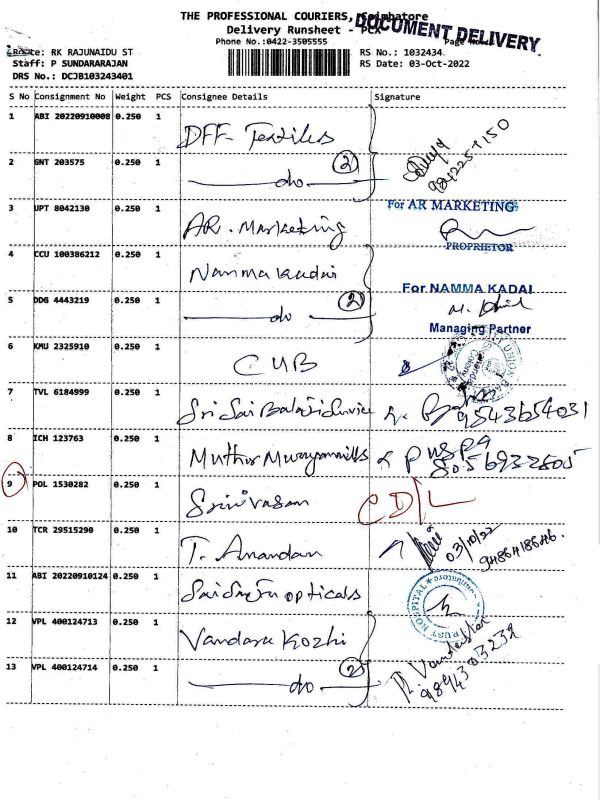 THE PROFESSIONAL COURIERS, Coimbatore
Delivery Runsheet - PCX
DOCUMENT DELIVERY
Phone No.:0422-3505555
Route: RK RAJUNAIDU ST
RS No.: 1032434
Staff: P SUNDARARAJAN
RS Date: 03-Oct-2022
DRS No.: DCJB103243401
S No Consignment No Weight PCS Consignee Details Signature
1 ABI 20220910008 0.250 1 DFF- Textiles
2 GNT 203575 0.250 1 do 2
3 UPT 8042130 0.250 1 AR. Marketing
For AR MARKETING
PROPRIETOR
4 CCU 100386212 0.250 1 Namma Kadai
For NAMMA KADAI
5 DDG 4443219 0.250 1 do 2
Managing Partner
6 KMU 2325910 0.250 1 CUB
7 TVL 6184999 0.250 1 Sri Sai Balaji 9543654031
8 ICH 123763 0.250 1 Muthu Murugan mills puspa
9 POL 1530282 0.250 1 Srinivasan CD/L
10 TCR 29515290 0.250 1 T. Anandan 03/10/22
11 ABI 20220910124 0.250 1 Sai opticals
12 VPL 400124713 0.250 1 Vandara Kozhi
13 VPL 400124714 0.250 1 do 2
9894303239